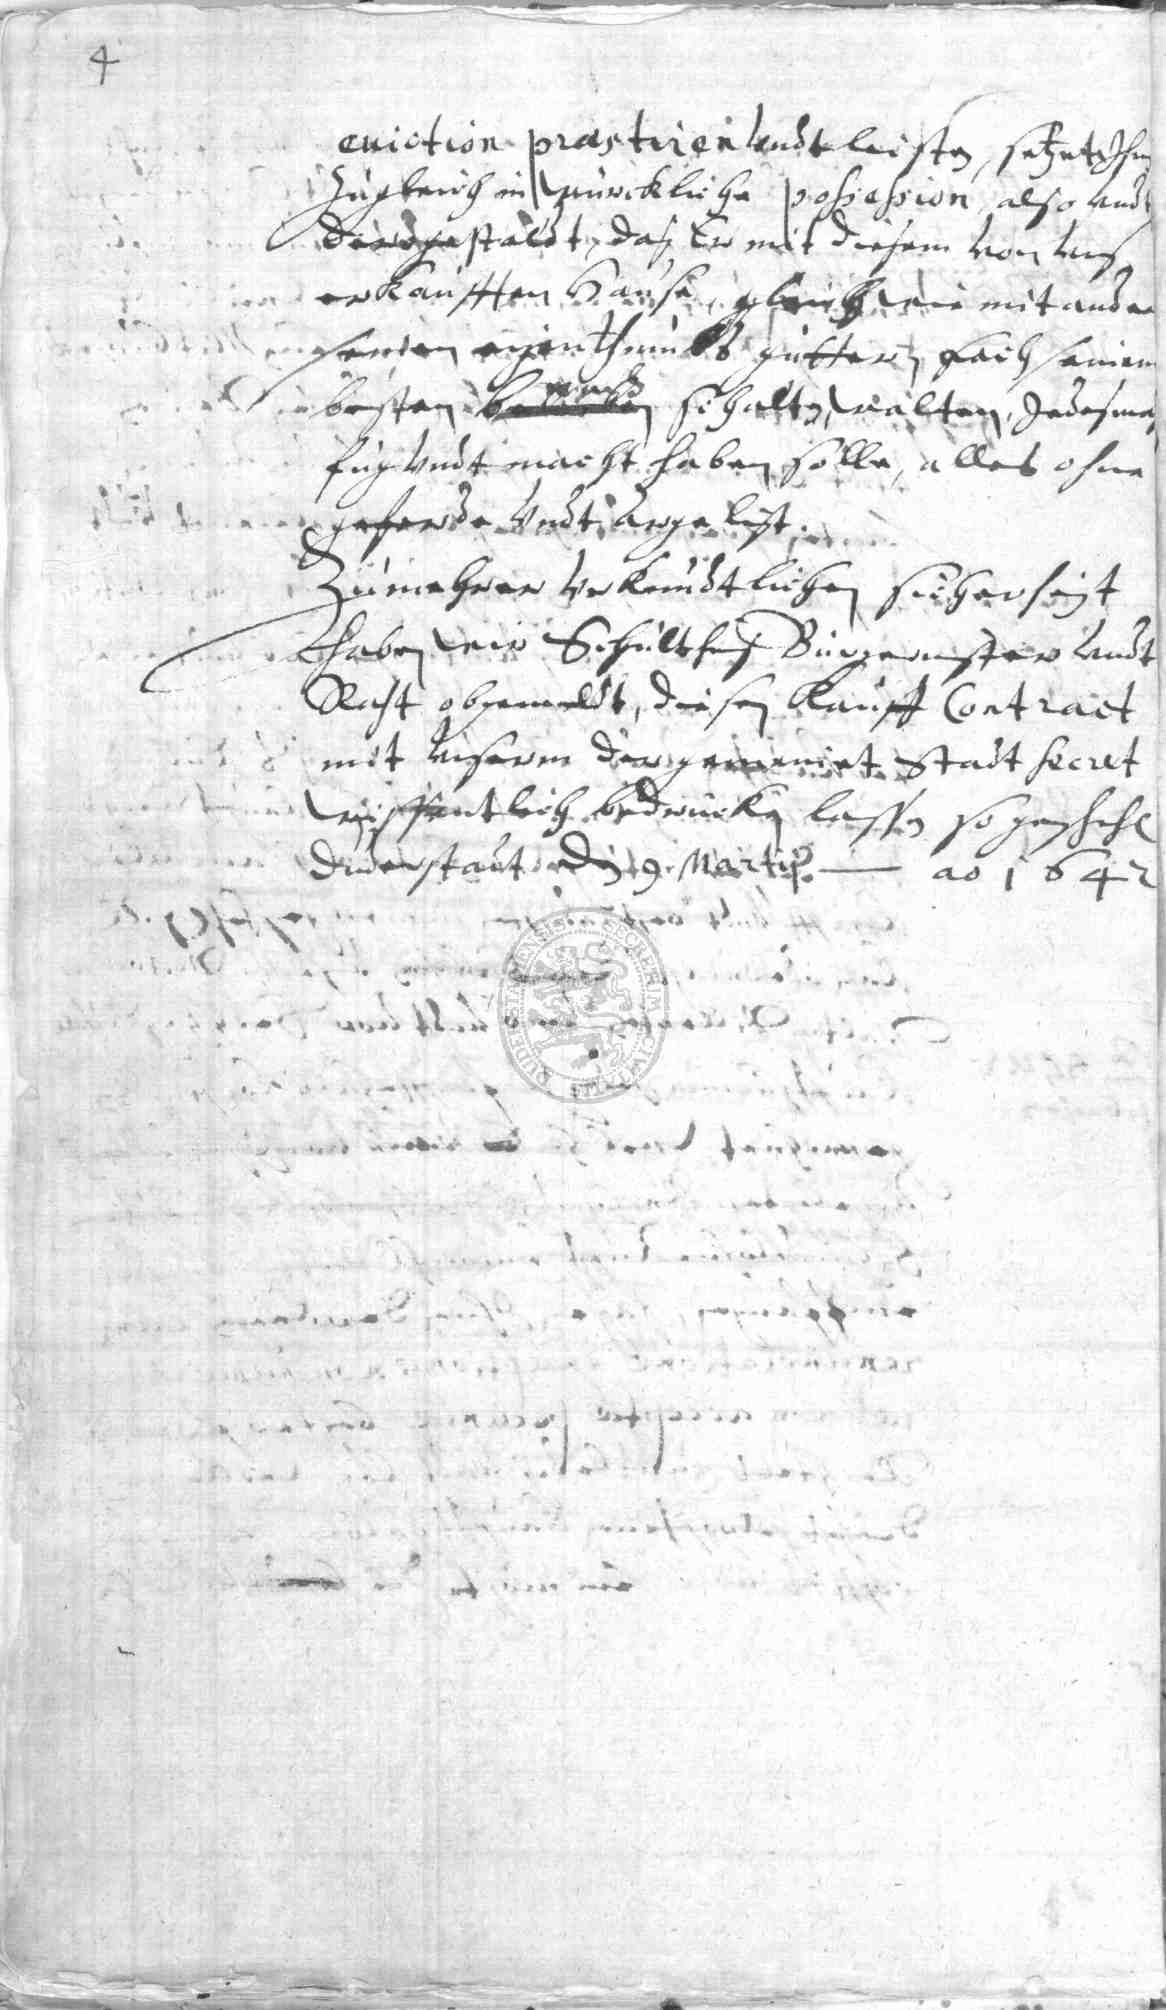 4
eviction præstiren undt leisten, setzet Ihn
zugleich in würckliche possession, also undt
dergestaldt, daß Er mit diesem von uns
erkaufften Hause, gleich wie mit andern
seinen eigenthumbs güttern, nach seinem
besten schalten, walten, Jedesmal
fug Undt macht haben solle, alles ohne
geferde Undt argelist.
Zu mehrer Uhrkundtlichen sicherheit
haben wir Schultheß Bürgermeister Undt
Raht obgemeldt, diesen Kauff Contract
mit Unserm der gemeinet Stadt secret
wissentlich bedrucken lassen so geschehen
Duderstadt den 9. Martij. — ao 1642
SECRETUM CIVITATIS DUDERSTADENSIS